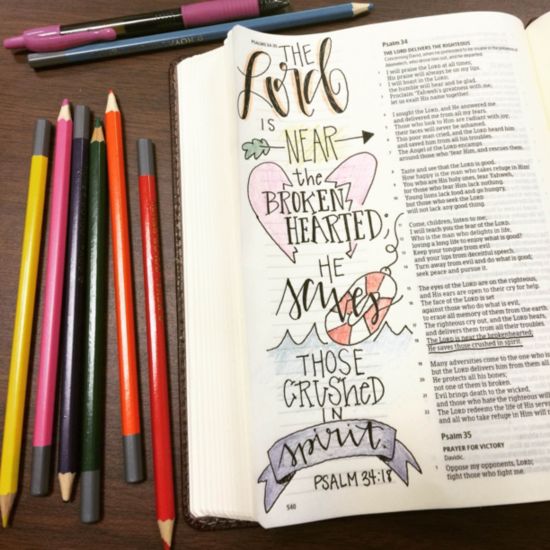 PSALMS 34-35
THE
Lord
IS
NEAR
the
BROKEN
HEARTED;
HE
saves
THOSE
CRUSHED
IN
spirit.
PSALM 34:18
540
Psalm 34
THE LORD DELIVERS THE RIGHTEOUS
Concerning David, when he pretended to be insane in the presence of
Abimelech, who drove him out, and he departed.
1 I will praise the LORD at all times;
His praise will always be on my lips.
2 I will boast in the LORD;
the humble will hear and be glad.
3 Proclaim Yahweh's greatness with me;
let us exalt His name together.
4 I sought the LORD, and He answered me
and delivered me from all my fears.
5 Those who look to Him are radiant with joy;
their faces will never be ashamed.
6 This poor man cried, and the LORD heard him
and saved him from all his troubles.
7 The Angel of the LORD encamps
around those who fear Him, and rescues them.
8 Taste and see that the LORD is good.
How happy is the man who takes refuge in Him!
9 You who are His holy ones, fear Yahweh,
for those who fear Him lack nothing.
10 Young lions lack food and go hungry,
but those who seek the LORD
will not lack any good thing.
11 Come, children, listen to me;
I will teach you the fear of the LORD.
12 Who is the man who delights in life,
loving a long life to enjoy what is good?
13 Keep your tongue from evil
and your lips from deceitful speech.
14 Turn away from evil and do what is good;
seek peace and pursue it.
15 The eyes of the LORD are on the righteous,
and His ears are open to their cry for help.
16 The face of the LORD is set
against those who do what is evil,
to erase all memory of them from the earth.
17 The righteous cry out, and the LORD hears,
and delivers them from all their troubles.
18 The LORD is near the brokenhearted;
He saves those crushed in spirit.
19 Many adversities come to the one who is
but the LORD delivers him from them all
20 He protects all his bones;
not one of them is broken.
21 Evil brings death to the wicked,
and those who hate the righteous will
22 The LORD redeems the life of His serv
and all who take refuge in Him will
Psalm 35
PRAYER FOR VICTORY
Davidic.
1 Oppose my opponents, LORD;
fight those who fight me.